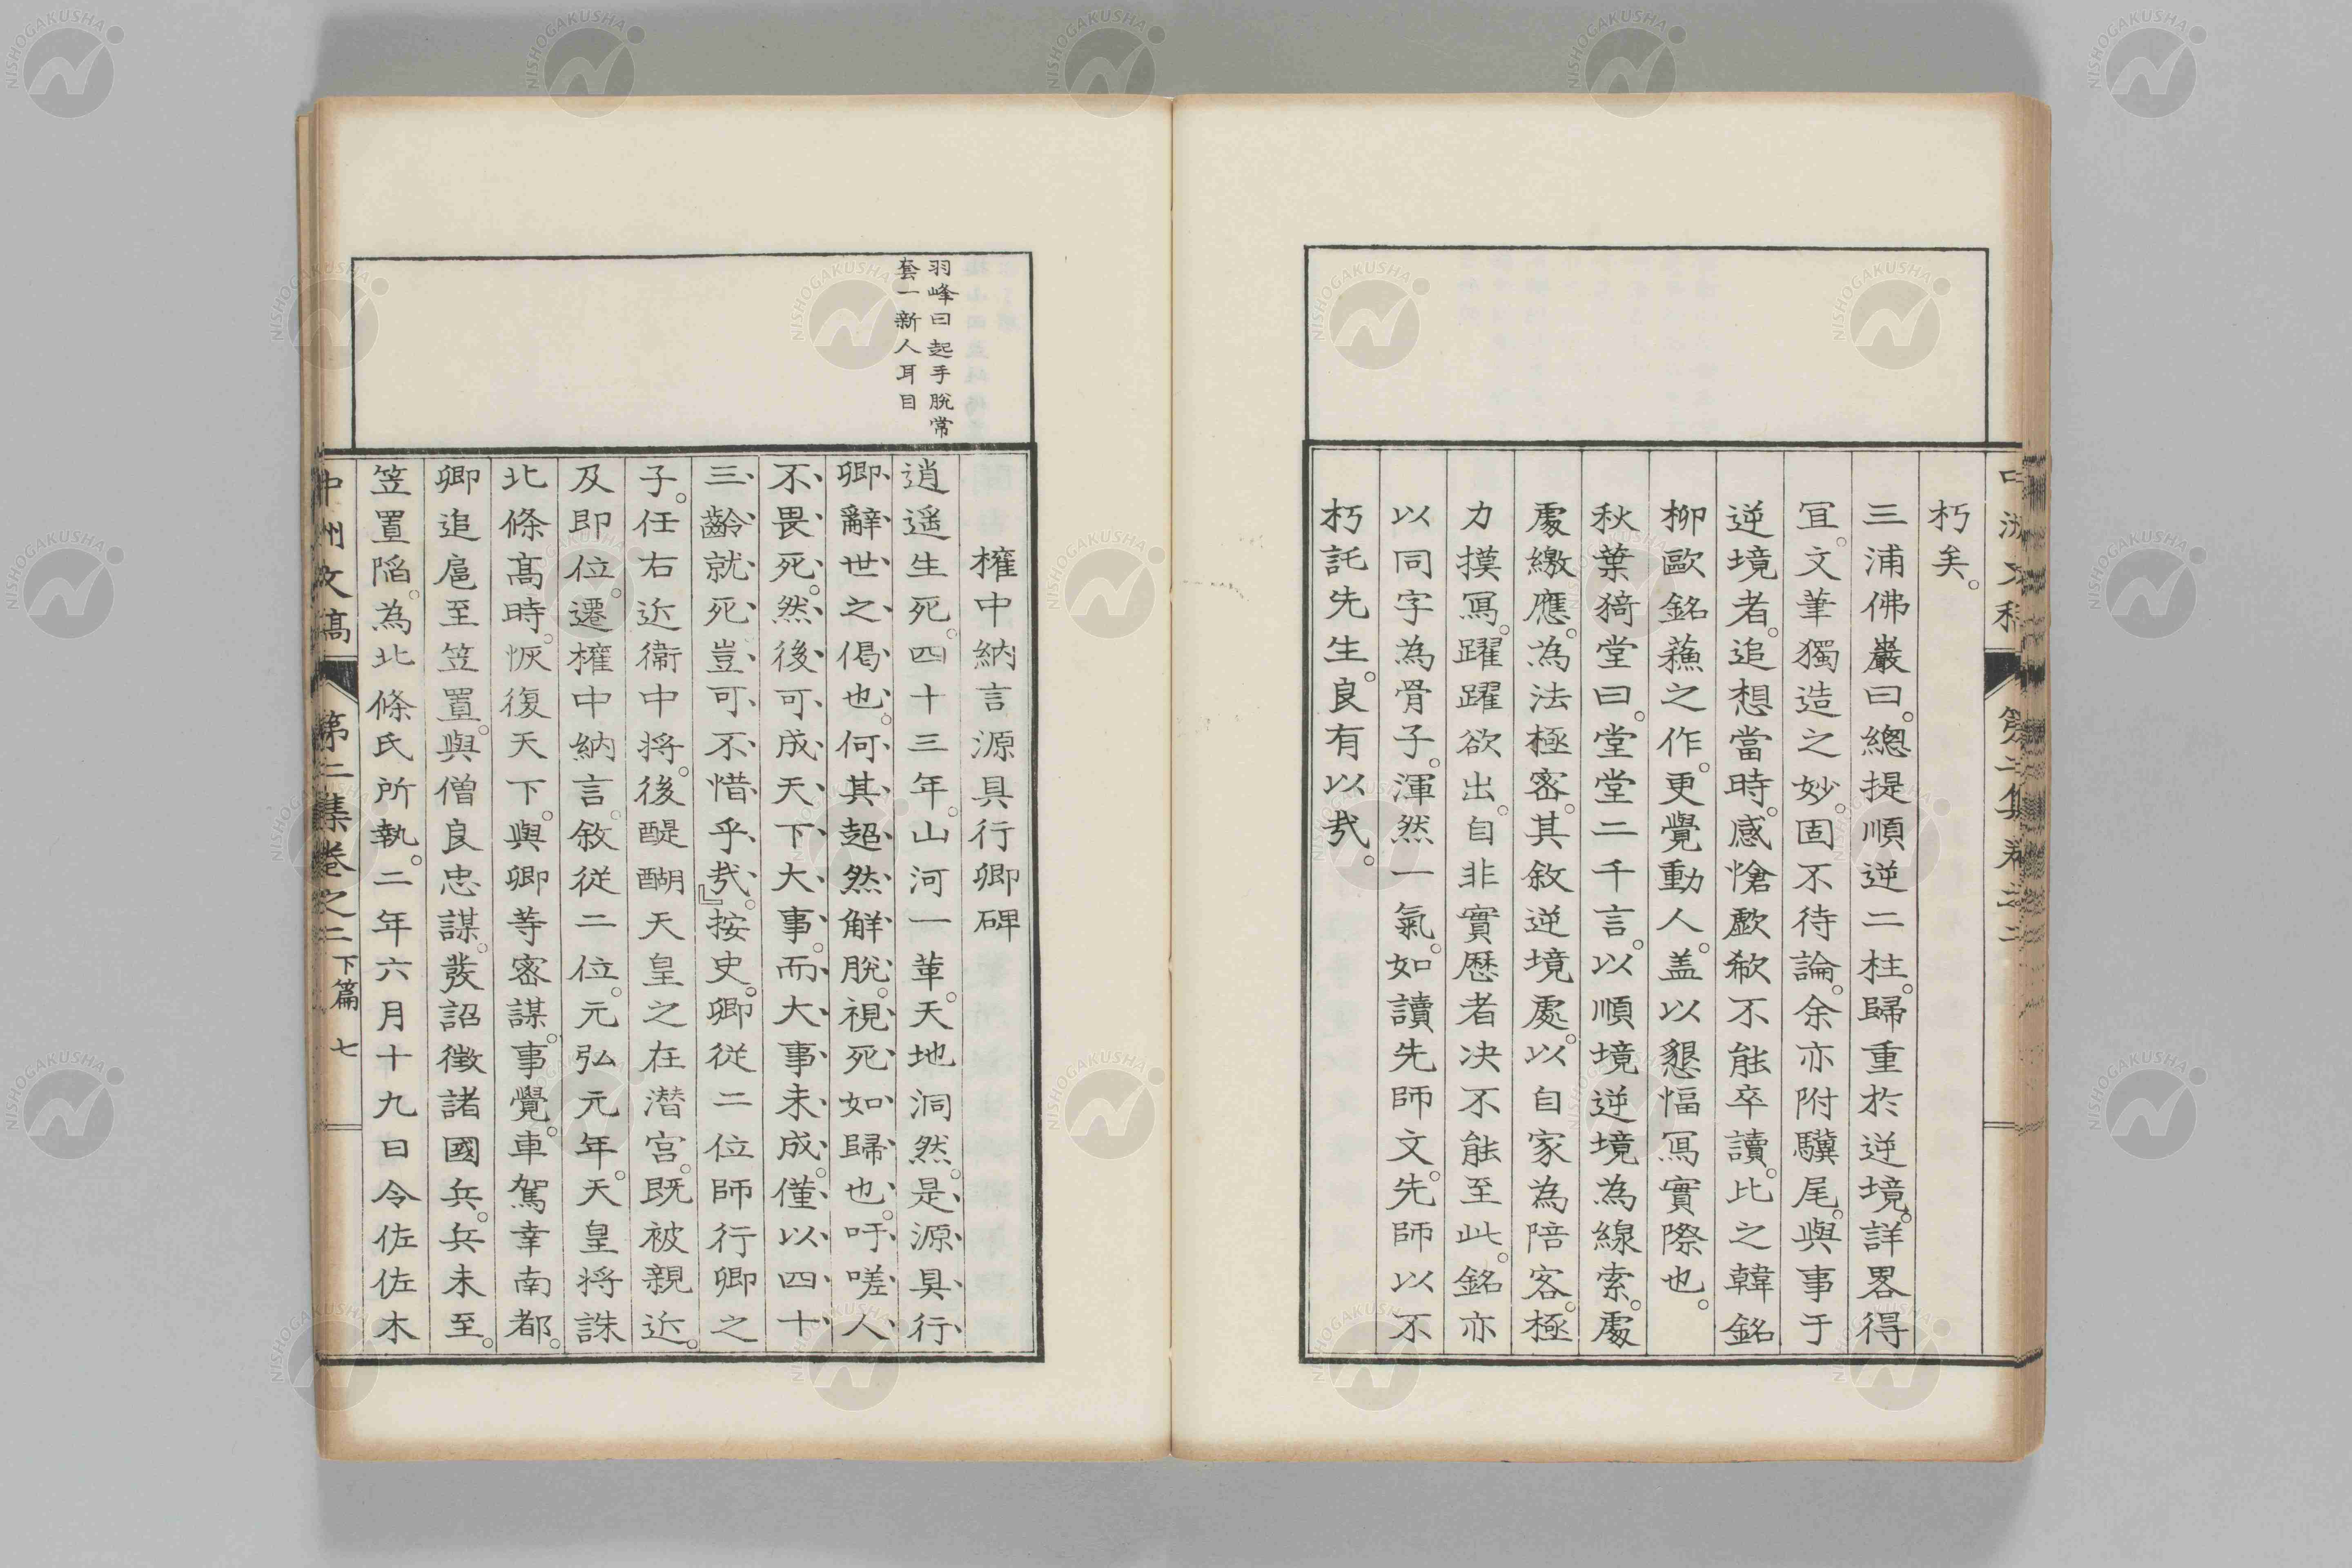 朽矣。
三浦佛巖曰。總提順逆二柱。歸重於逆境。詳畧得
冝。文筆獨造之妙。固不待論。余亦附驥尾。與事于
逆境者。追想當時。感愴歔欷不能卒讀。比之韓銘
柳歐銘蘓之作。更覺動人。盖以懇愊冩實際也。
秋葉猗堂曰。堂堂二千言。以順境逆境為線索。處
處繳應。為法極密。其敘逆境處。以自家為陪客。極
力摸冩。躍躍欲出。自非實歴者决不能至此。銘亦
以同字為骨子。渾然一氣。如讀先師文。先師以不
朽託先生。良有以㢤。
羽峰曰起手脫常
套一新人耳目
權中納言源具行卿碑
逍遥生死。四十三年。山河一革。天地洞然。是源具行
卿辭世之偈也。何其超然解脫。視死如歸也。吁嗟人
不畏死。然後可成天下大事。而大事未成。僅以四十
三齡就死豈可不惜乎㢤。』按史。卿従二位師行卿之
子。任右近衞中将。後醍醐天皇之在潜宫。既被親近。
及即位。遷權中納言。敘従二位。元弘元年。天皇将誅
北條髙時。恢復天下。與卿等密謀。事覺。車駕幸南都。
卿追扈至笠置。與僧良忠謀。發詔徴諸國兵。兵未至。
笠置陷。為北條氏所執。二年六月十九日令佐佐木
中洲文稿 第二集卷之二下篇 七